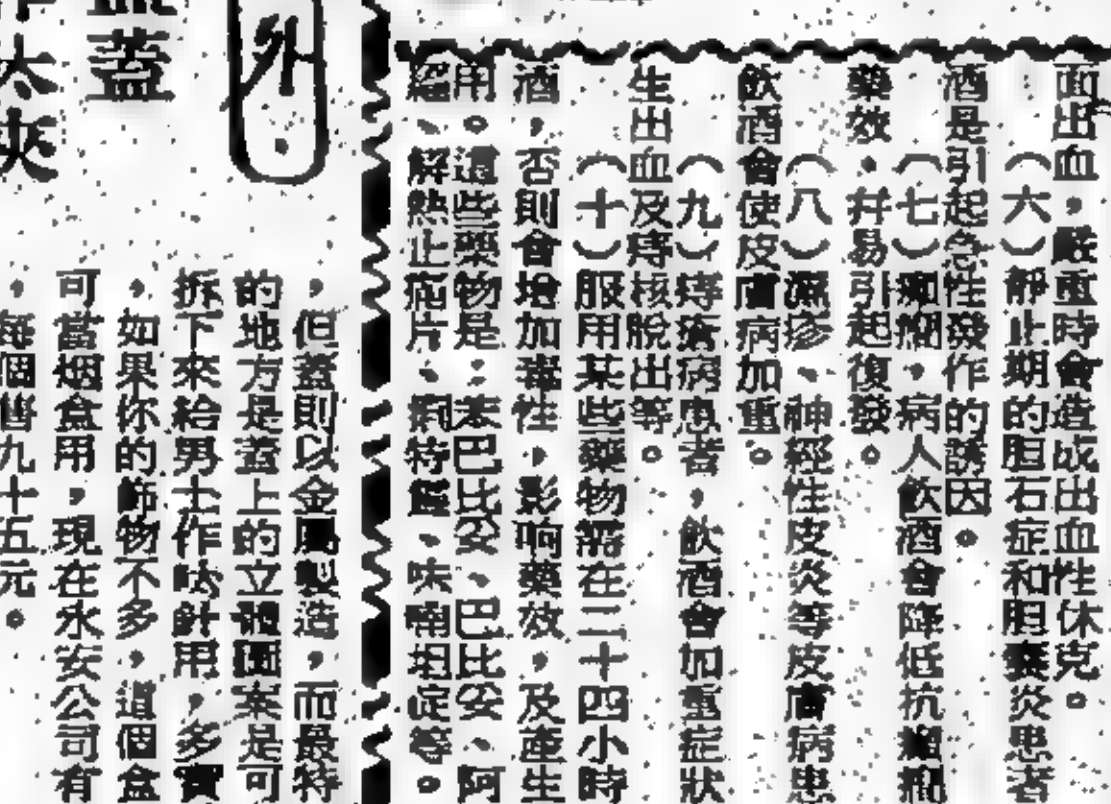 面出血，嚴重時會造成出血性休克。
（六）靜止期的胆石症和胆囊炎患者
酒是引起急性發作的誘因。
（七）癲癇，病人飲酒會降低抗癲癇
藥效，幷易引起復發。
（八）濕疹、神經性皮炎等皮膚病患
飲酒會使皮膚病加重。
（九）痔瘡病患者，飲酒會加重症狀
生出血及痔核脫出等。
（十）服用某些藥物需在二十四小時
酒，否則會增加毒性，影响藥效，及產生
用。這些藥物是：苯巴比妥、巴比妥、阿
解熱止痛片、痢特靈、呋喃坦啶等。
外
蓋
太夾
，但蓋則以金屬製造，而最特
的地方是蓋上的立體圖案是可
拆下來給男士作呔針用，多
，如果你的飾物不多，這個盒
可當烟盒用，現在永安公司有
，每個售九十五元。